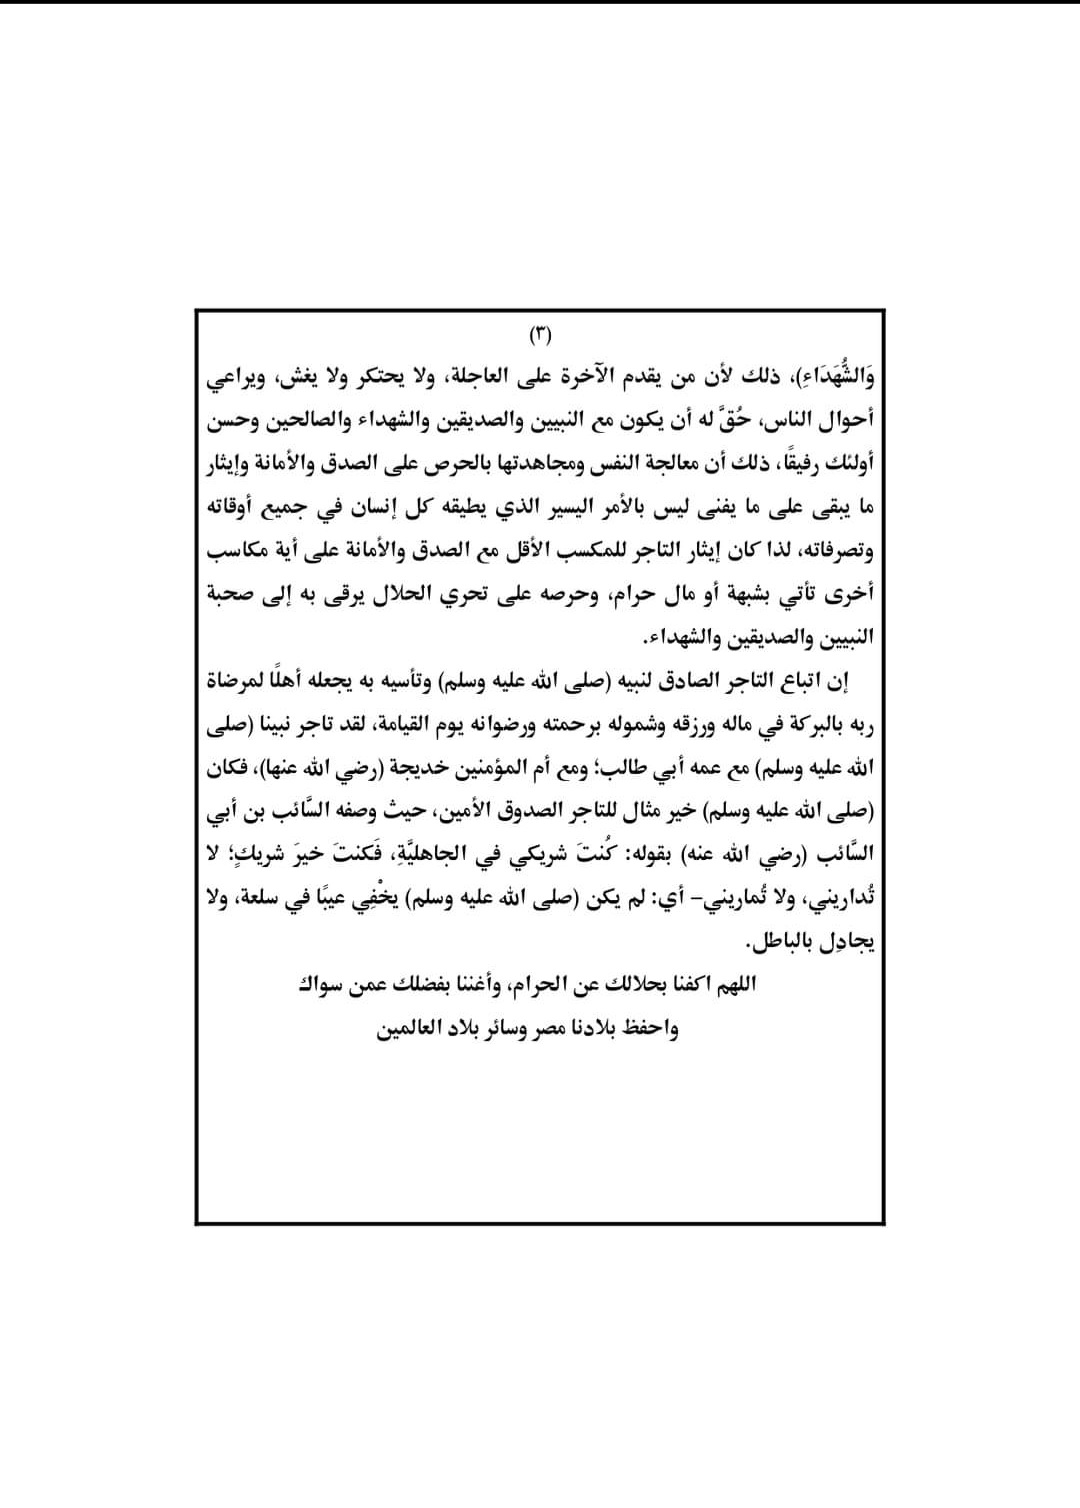 (٣)
وَالشُّهَدَاءِ)، ذلك لأن من يقدم الآخرة على العاجلة، ولا يحتكر ولا يغش، ويراعي
أحوال الناس، حُقَّ له أن يكون مع النبيين والصديقين والشهداء والصالحين وحسن
أولئك رفيقًا، ذلك أن معالجة النفس ومجاهدتها بالحرص على الصدق والأمانة وإيثار
ما يبقى على ما يفنى ليس بالأمر اليسير الذي يطيقه كل إنسان في جميع أوقاته
وتصرفاته، لذا كان إيثار التاجر للمكسب الأقل مع الصدق والأمانة على أية مكاسب
أخرى تأتي بشبهة أو مال حرام، وحرصه على تحري الحلال يرقى به إلى صحبة
النبيين والصديقين والشهداء.
إن اتباع التاجر الصادق لنبيه (صلى الله عليه وسلم) وتأسيه به يجعله أهلًا لمرضاة
ربه بالبركة في ماله ورزقه وشموله برحمته ورضوانه يوم القيامة، لقد تاجر نبينا (صلى
الله عليه وسلم) مع عمه أبي طالب؛ ومع أم المؤمنين خديجة (رضي الله عنها)، فكان
(صلى الله عليه وسلم) خير مثال للتاجر الصدوق الأمين، حيث وصفه السَّائب بن أبي
السَّائب (رضي الله عنه) بقوله: كُنتَ شريكي في الجاهليَّةِ، فَكنتَ خيرَ شريكٍ؛ لا
تُداريني، ولا تُماريني– أي: لم يكن (صلى الله عليه وسلم) يخْفِي عيبًا في سلعة، ولا
يجادِل بالباطل.
اللهم اكفنا بحلالك عن الحرام، وأغننا بفضلك عمن سواك
واحفظ بلادنا مصر وسائر بلاد العالمين